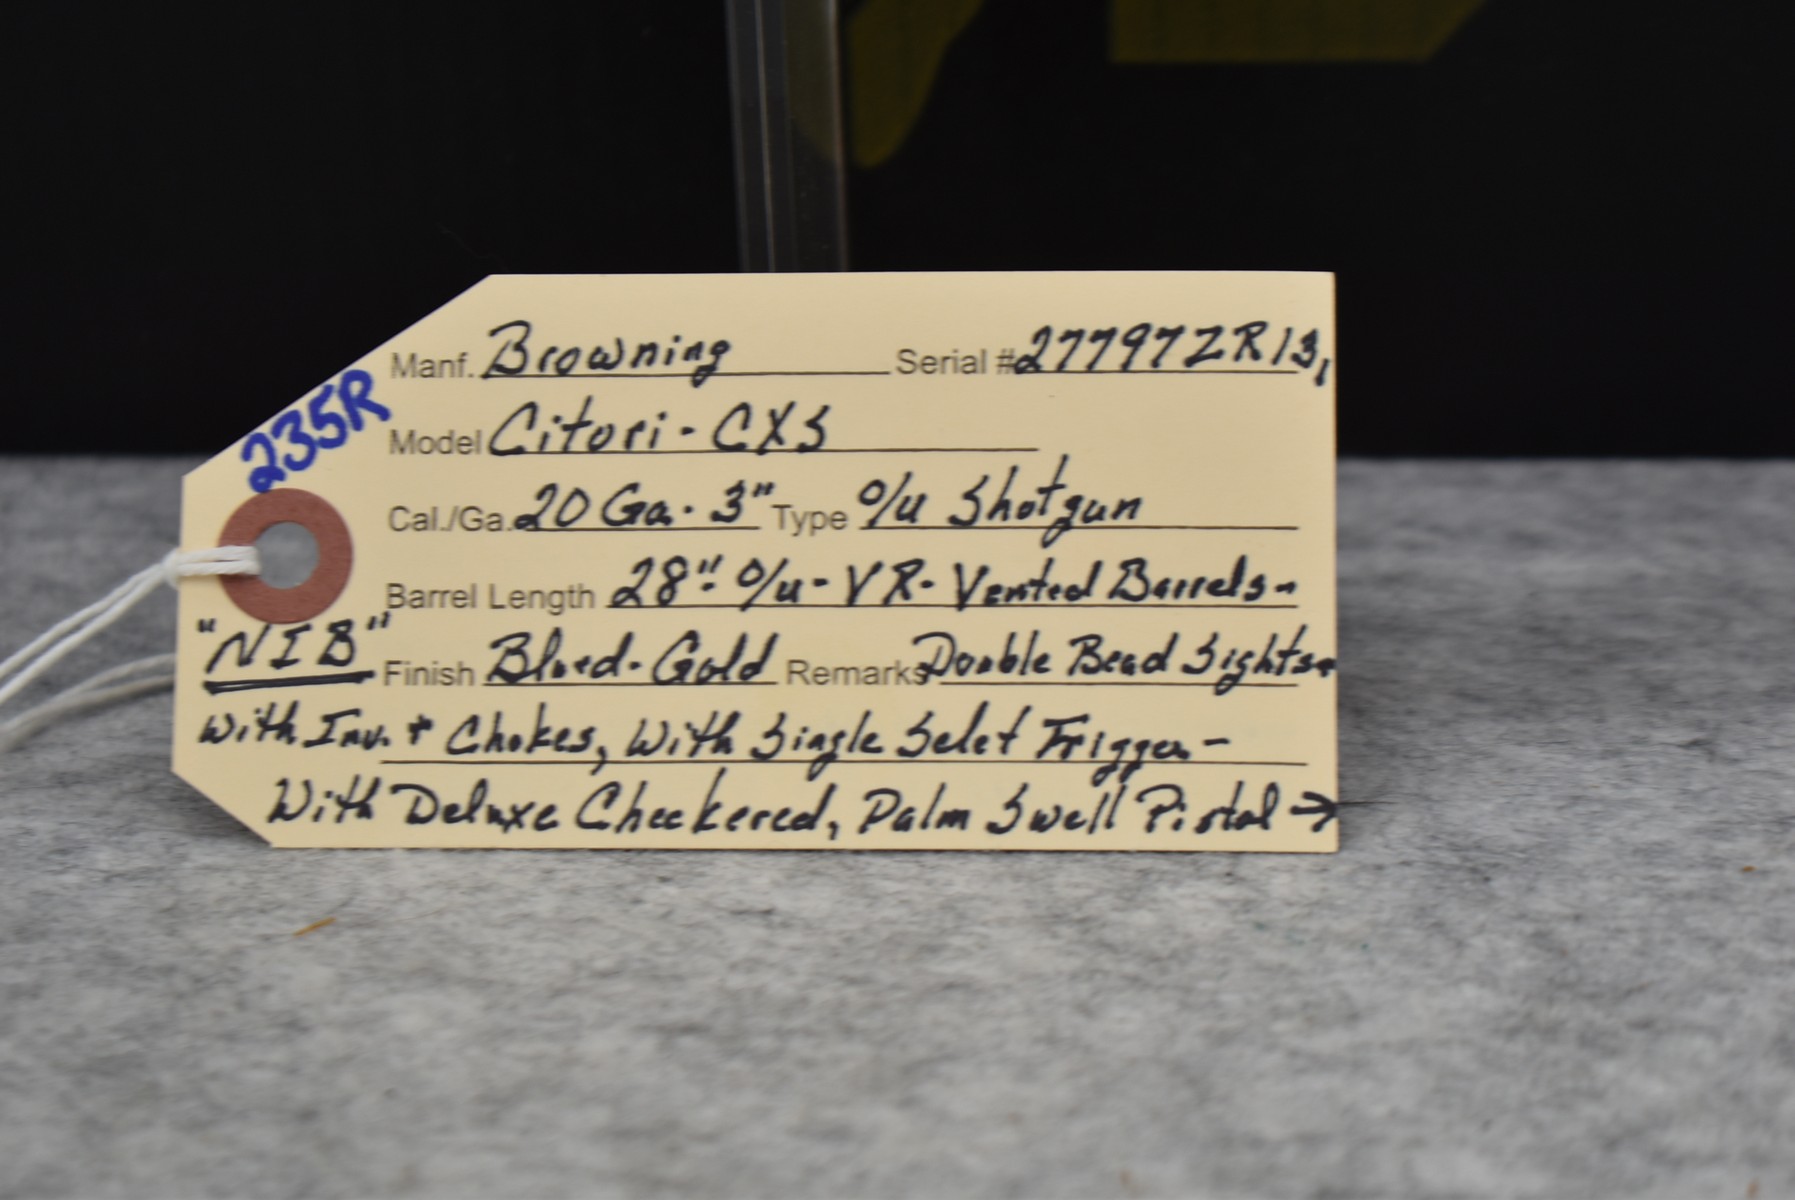 235R
Manf. Browning Serial # 27797ZR13,
Model Citori - CXS
Cal./Ga. 20 Ga. 3" Type O/U Shotgun
Barrel Length 28" O/u - VR - Vented Barrels -
"NIB" Finish Blued - Gold Remarks Double Bead Sights -
With Inv. + Chokes, With Single Selet Trigger -
With Deluxe Checkered, Palm Swell Pistol →